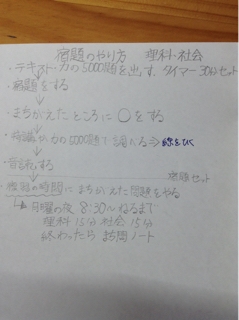 宿題のやり方 理科・社会
・テキスト力の5000題を出す タイマー30分セット
・宿題をする
・まちがえたところに○をする
・力の5000題で調べる⇒線をひく
・音読する
の時間にまちがえた問題をやる
月曜の夜 8:30〜ねるまで
理科15分 社会15分
終わったら ノート